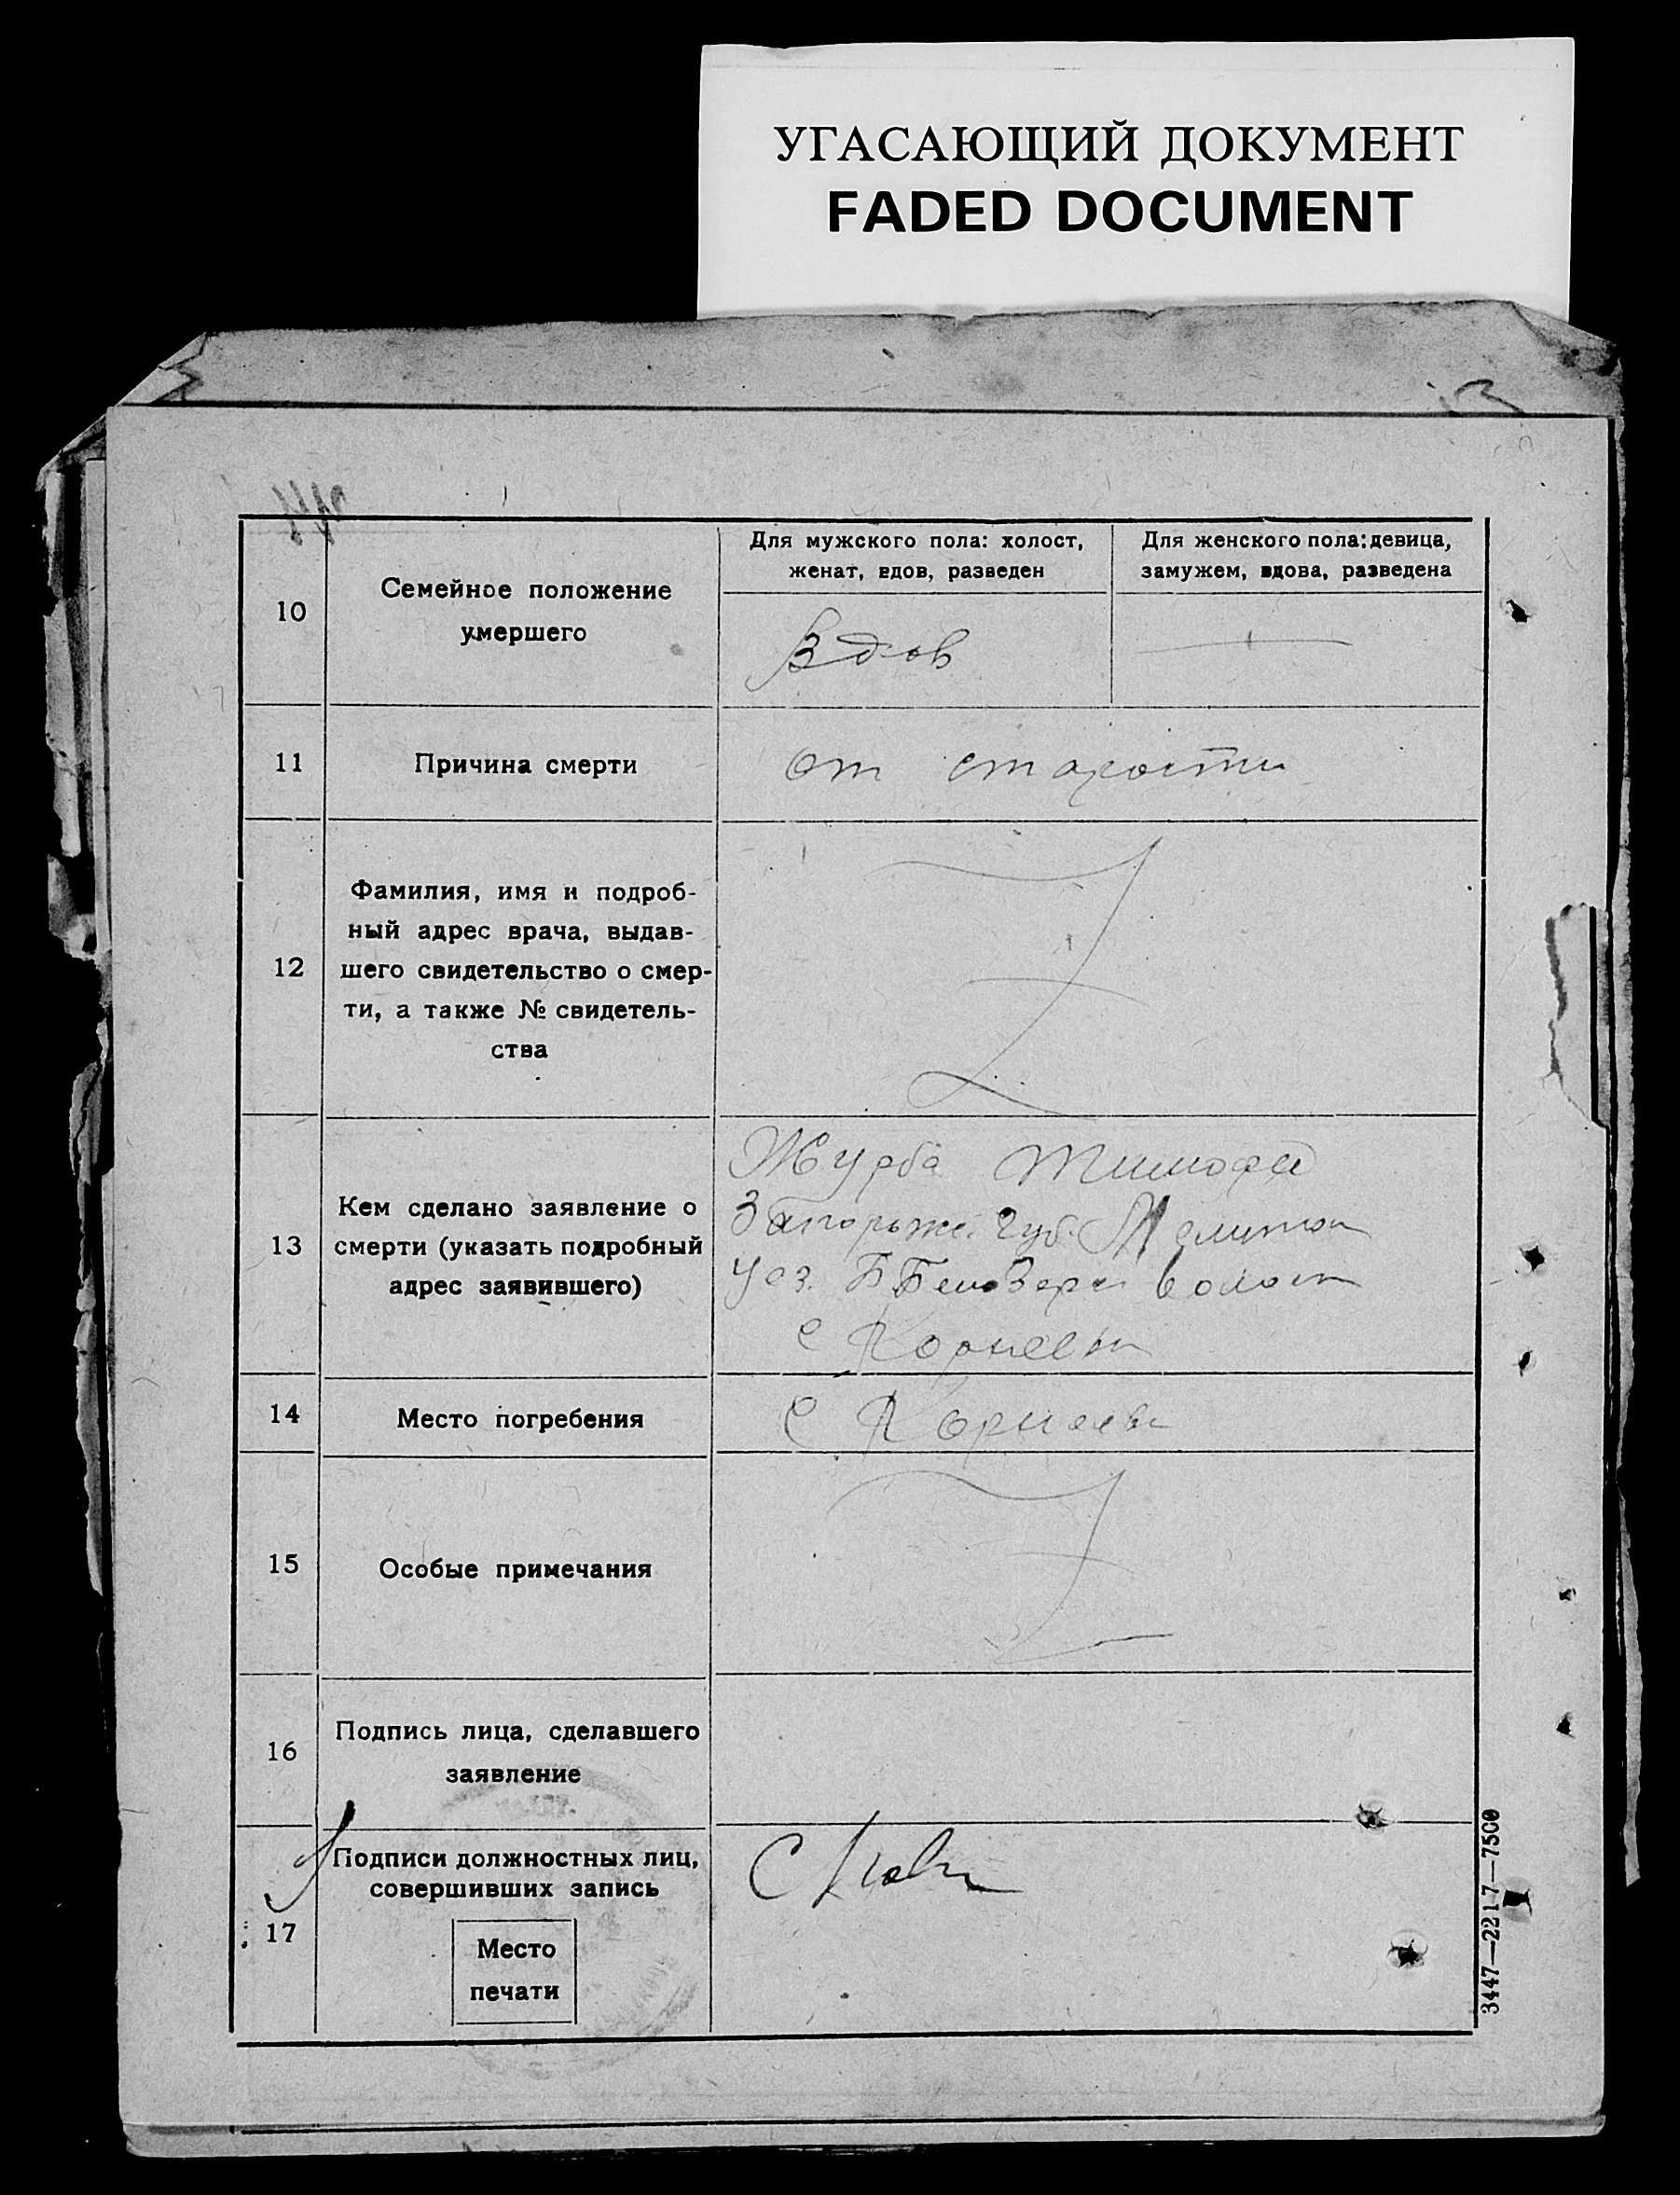 УГАСАЮЩИЙ ДОКУМЕНТ
FADED DOCUMENT
10
Семейное положение
умершего
Для мужского пола: холост,
женат, вдов, разведен
Для женского пола: девица,
замужем, вдова, разведена
Вдов
11
Причина смерти
от старости
12
Фамилия, имя и подроб-
ный адрес врача, выдав-
шего свидетельство о смер-
ти, а также № свидетель-
ства
13
Кем сделано заявление о
смерти (указать подробный
адрес заявившего)
Журба Тимофей
Запорожс. губ. Мелитоп
Уез. Б Белозерс волост
с Корнеевк
14
Место погребения
с Корнеевк
15
Особые примечания
16
Подпись лица, сделавшего
заявление
17
Подписи должностных лиц,
совершивших запись
Место
печати
3447—2217—7500